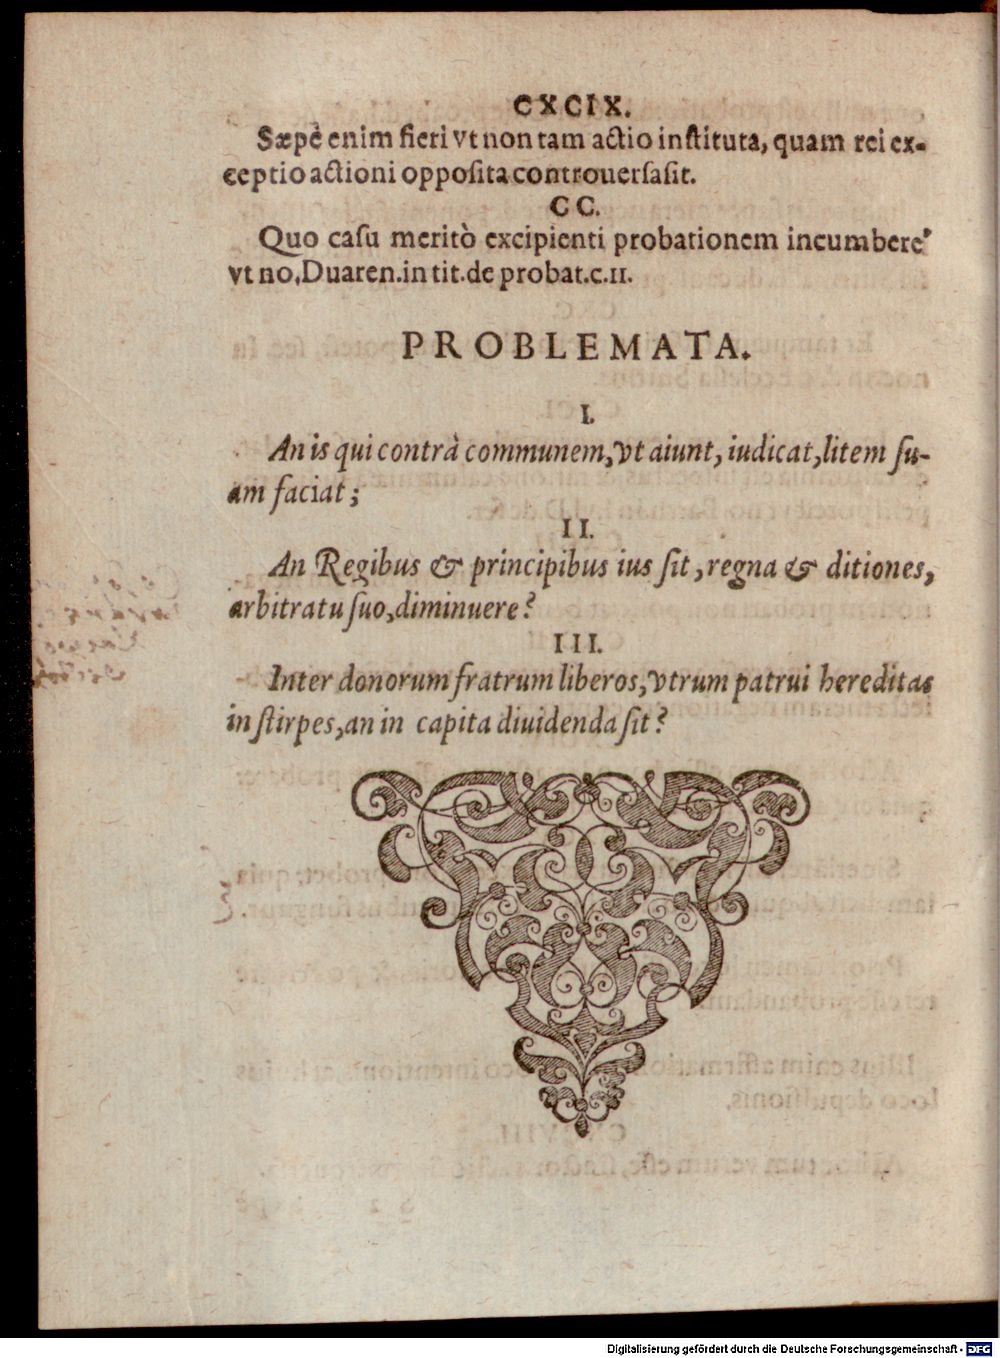 CXCIX.
Sæpè enim fieri vt non tam actio instituta, quam rei ex-
ceptio actioni opposita controuersa sit.
CC.
Quo casu meritò excipienti probationem incumbere
vt no. Duaren. in tit. de probat. c. 11.
PROBLEMATA.
I.
An is qui contrà communem, vt aiunt, iudicat, litem su-
am faciat;
II.
An Regibus & principibus ius sit, regna & ditiones,
arbitratu suo, diminuere?
III.
Inter donorum fratrum liberos, vtrum patrui hereditas
in stirpes, an in capita diuidenda sit?
Digitalisierung gefördert durch die Deutsche Forschungsgemeinschaft - DFG